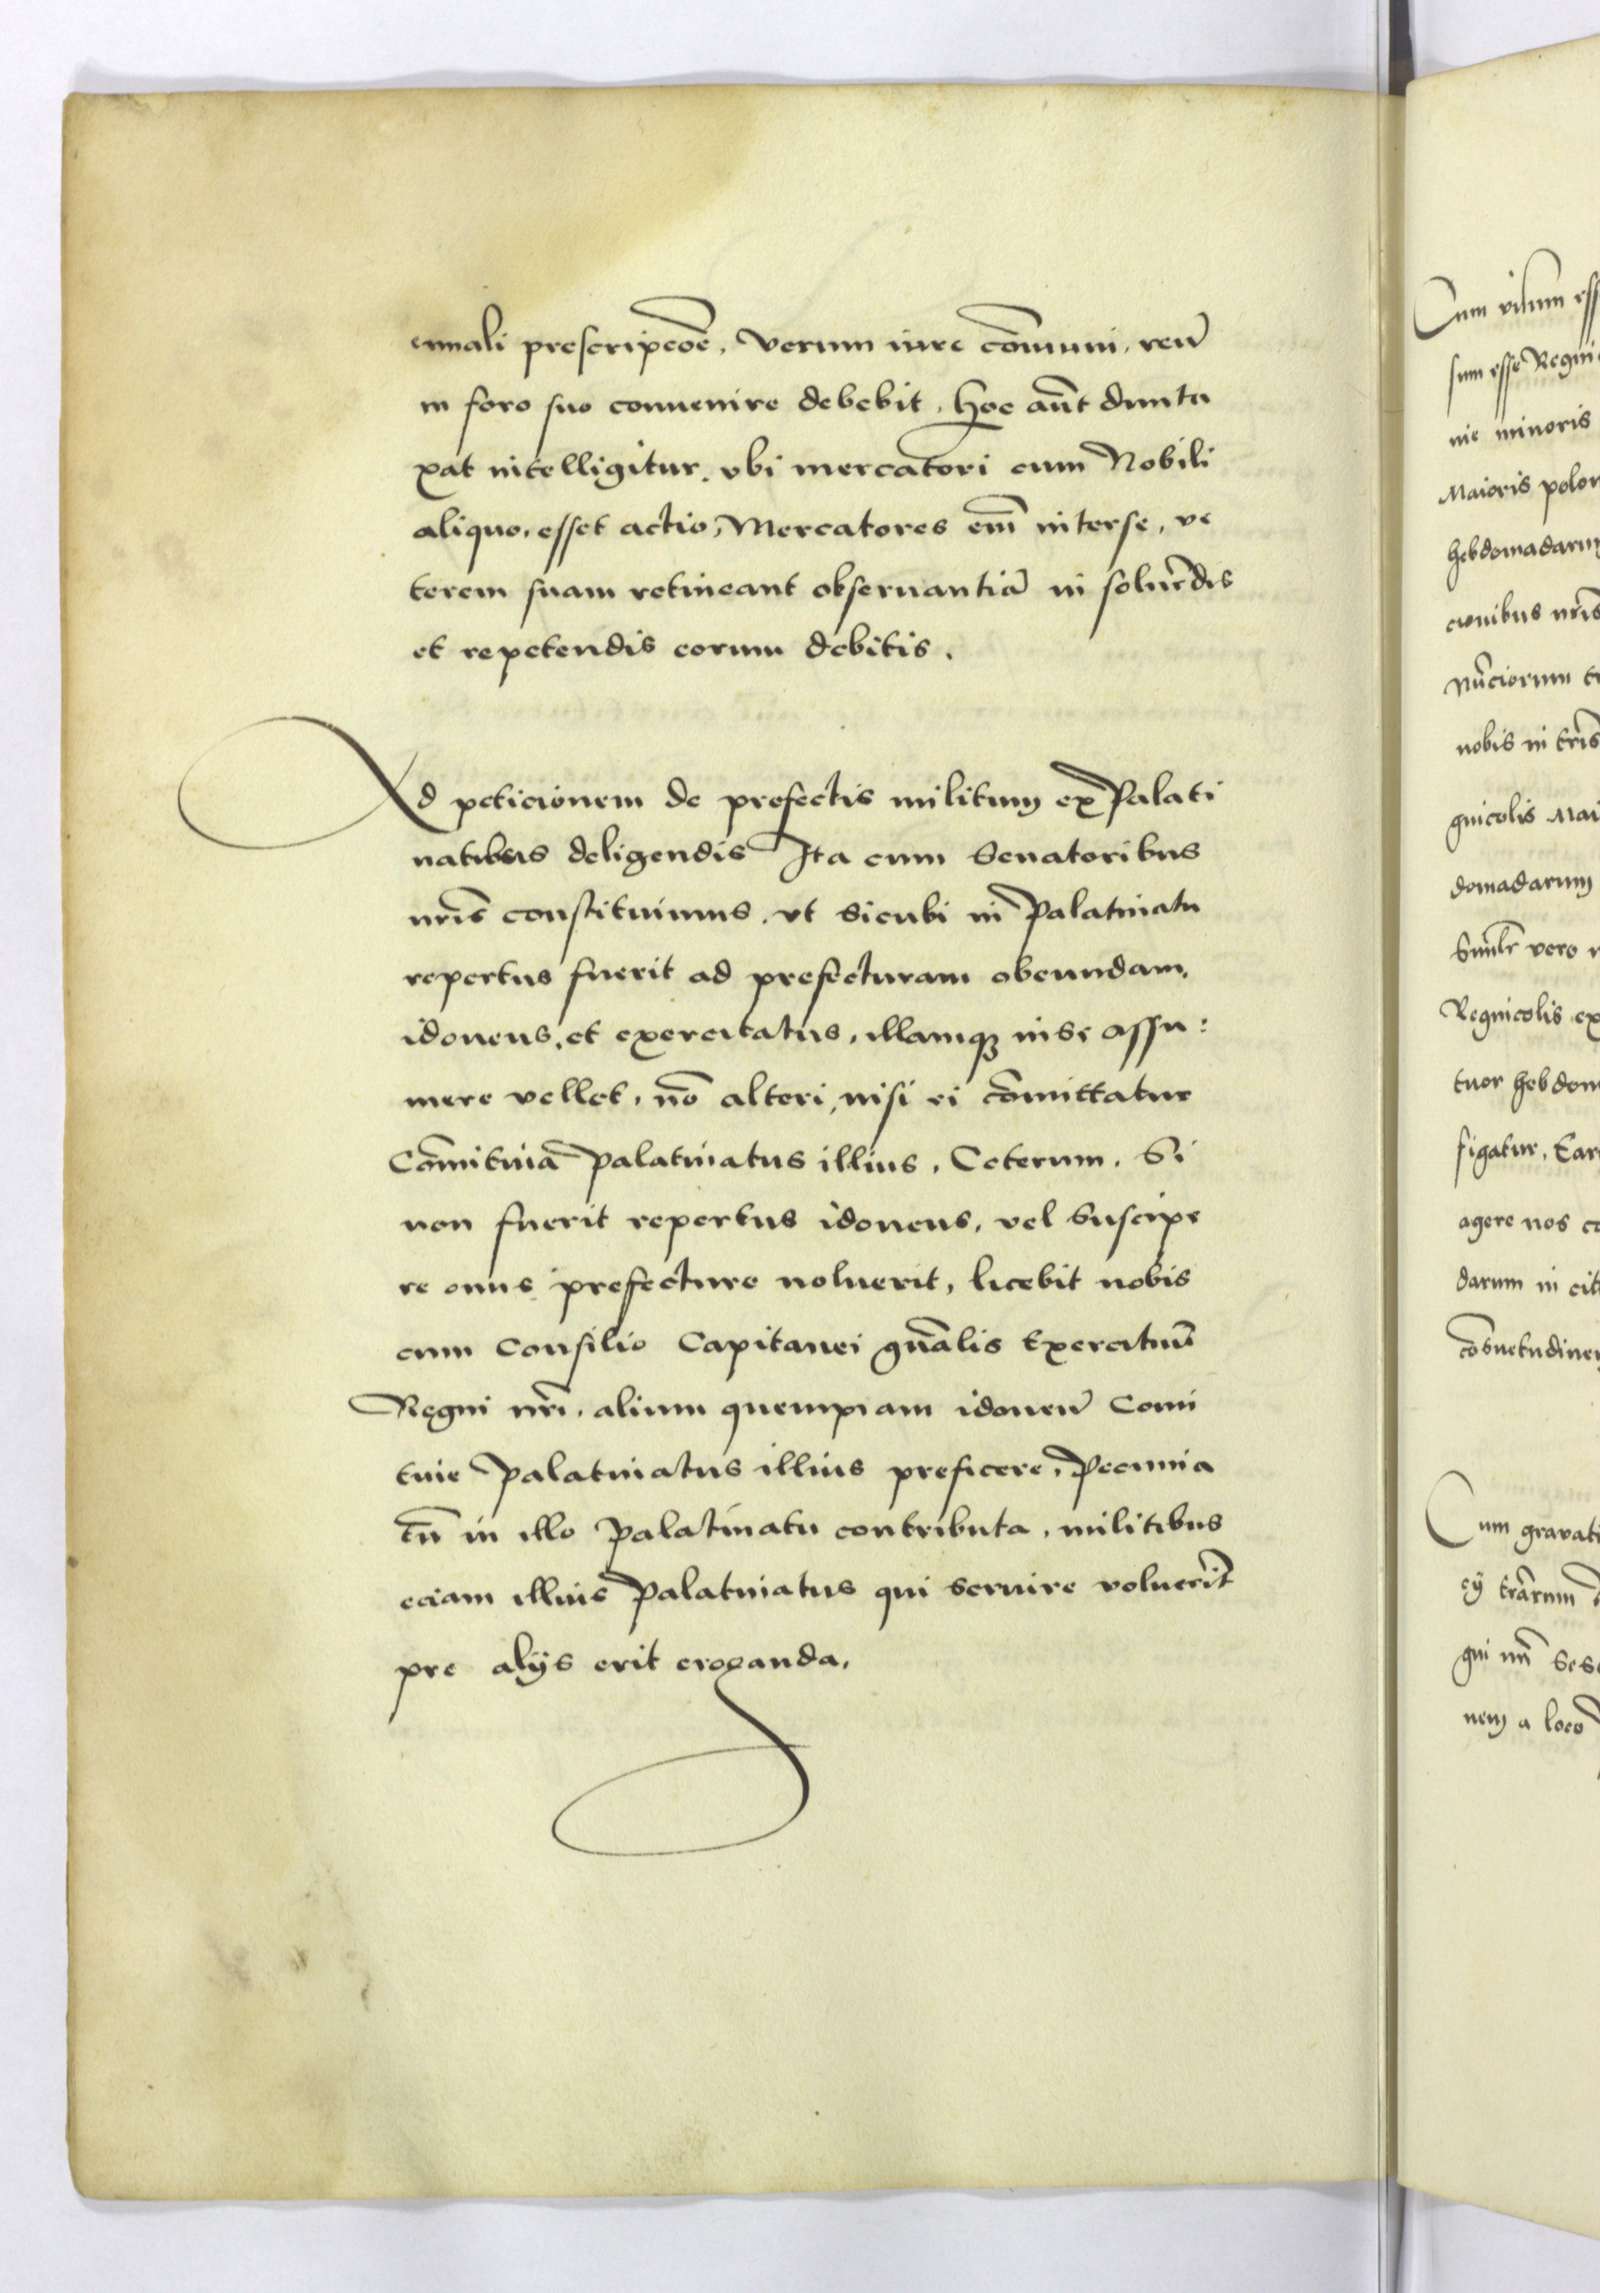 ennali prescripcōe, verum iure cōmuni, reū
in foro suo conuenire debebit. Hoc aūt dunta
xat intelligitur, vbi mercatori cum Nobili
aliquo, esset actio, Mercatores em̄ interse, ve
terem suam retineant obseruantiā in soluēdis
et repetendis eorum debitis.
Ad peticionem de prefectis militum ex Palati
natibus deligendis Ita cum Senatoribus
nr̄is constituimus, vt sicubi in Palatinatu
repertus fuerit ad prefecturam obeundam,
idoneus, et exercitatus, illamqȝ inse assu:
mere vellet, nō alteri, nisi ei cōmittatur
Cōmitiua Palatinatus illius, Ceterum, Si
non fuerit repertus idoneus, vel Suscipe
re onus prefecture noluerit, licebit nobis
cum Consilio Capitanei gn̄alis Exercituū
Regni nr̄i, alium quempiam idoneū Comi
tiue Palatinatus illius preficere, Pecunia
tn̄ in illo Palatinatu contributa, militibus
eciam illius Palatinatus qui seruire voluerīt
pre alijs erit eroganda.
Cum visum ess
sum esse Regni
nie minoris
Maioris polon
hebdomadarum
cionibus nr̄is
Nūciorum t
nobis in tr̄is
gnicolis Mai
domadarum
Simlr̄ vero
Regnicolis ex
tuor hebdom
figatur, Ear
agere nos co
darum in cit
cōsuetudinem
Cum grauati
ey tr̄arum
gni nr̄i Sese
nem a loco